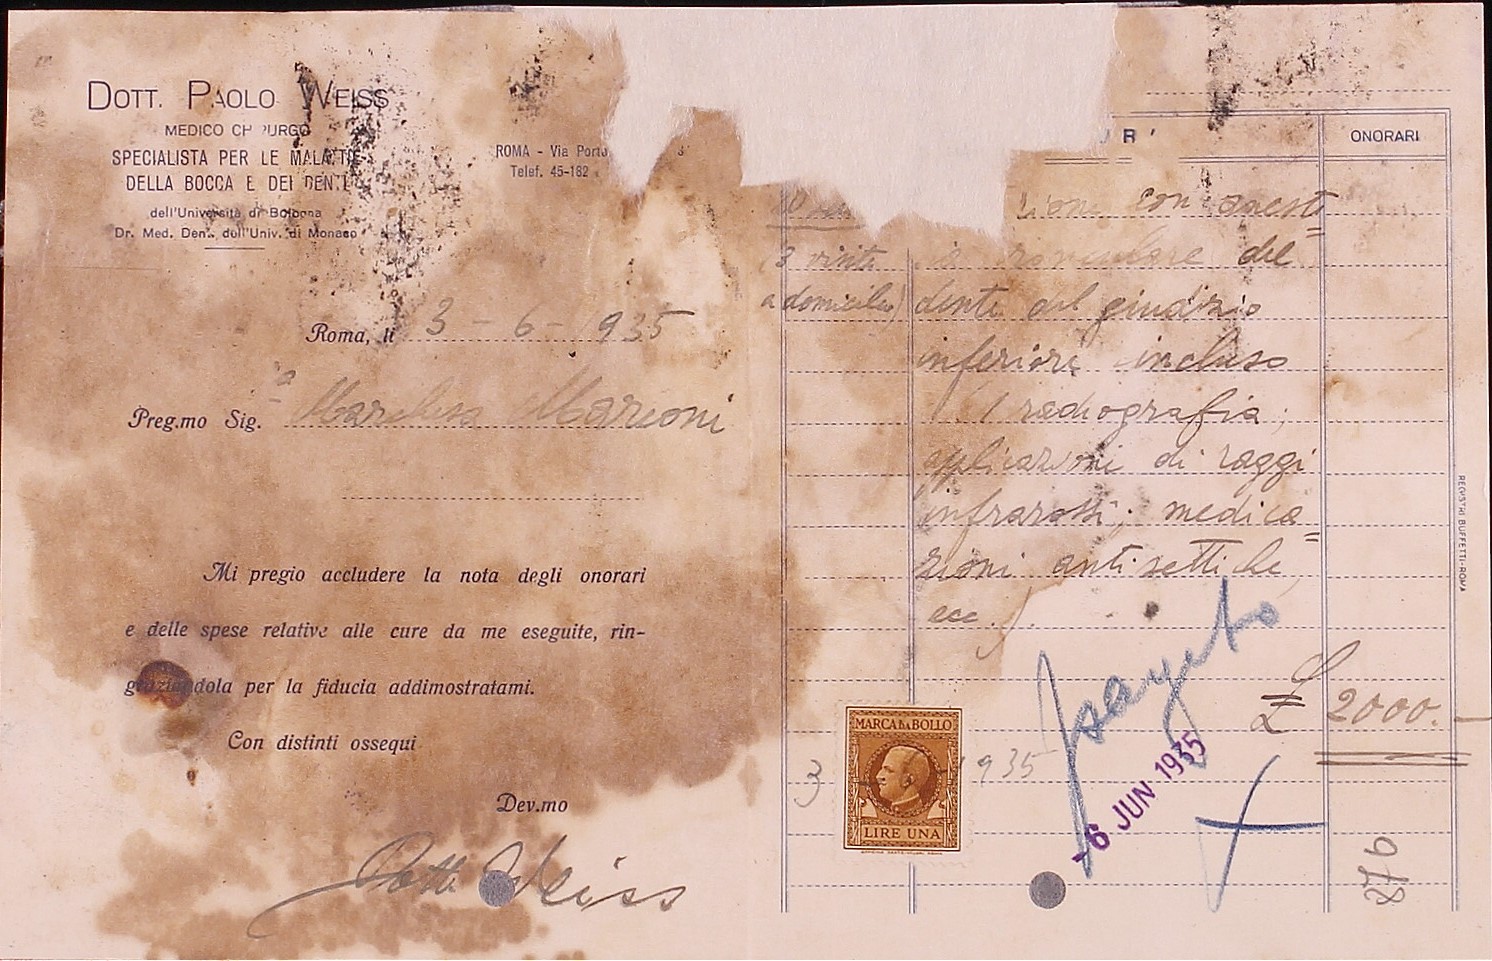 DOTT. PAOLO WEISS
MEDICO CHIRURGO
SPECIALISTA PER LE MALATTIE
DELLA BOCCA E DEI DENTI
dell'Università di Bologna
Dr. Med. Dent. dell'Univ. di Monaco
ROMA - Via
Telef. 45-182
Roma, li 3 - 6 - 935
Preg.mo Sig.a Marchesa Marconi
Mi pregio accludere la nota degli onorari
e delle spese relative alle cure da me eseguite, rin-
graziandola per la fiducia addimostratami.
Con distinti ossequi
Dev.mo
Dott. Weiss
ONORARI
con anest=
(3 visite
del
a domicilio)
dente del giudizio
inferiore incluso
1 radiografia;
applicazioni di raggi
infrarossi; medica=
zioni antisettiche
ecc.
£ 2000.—
MARCA DA BOLLO
LIRE UNA
3
1935
pagato
-6 JUN 1935
876
REGISTRI BUFFETTI-ROMA